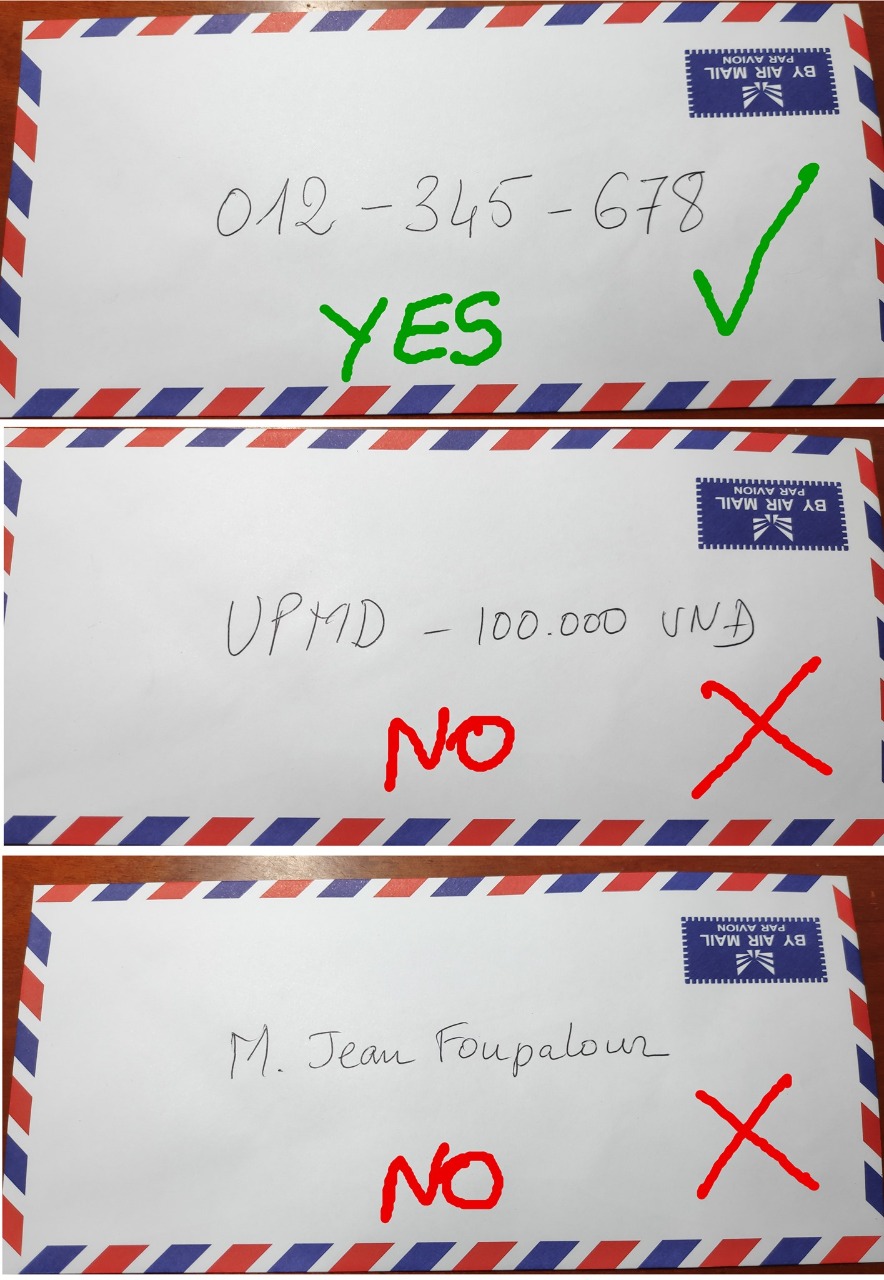 BY AIR MAIL
PAR AVION
012 - 345 - 678
YES
BY AIR MAIL
PAR AVION
UPMD - 100.000 VNĐ
NO
BY AIR MAIL
PAR AVION
M. Jean Foupalour
NO